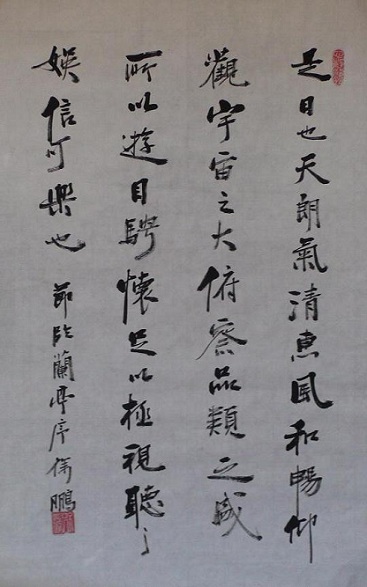 是日也天朗氣清惠風和暢仰
觀宇宙之大俯察品類之盛
所以遊目騁懷足以極視聽之
娛信可樂也 節臨蘭亭序 鵬